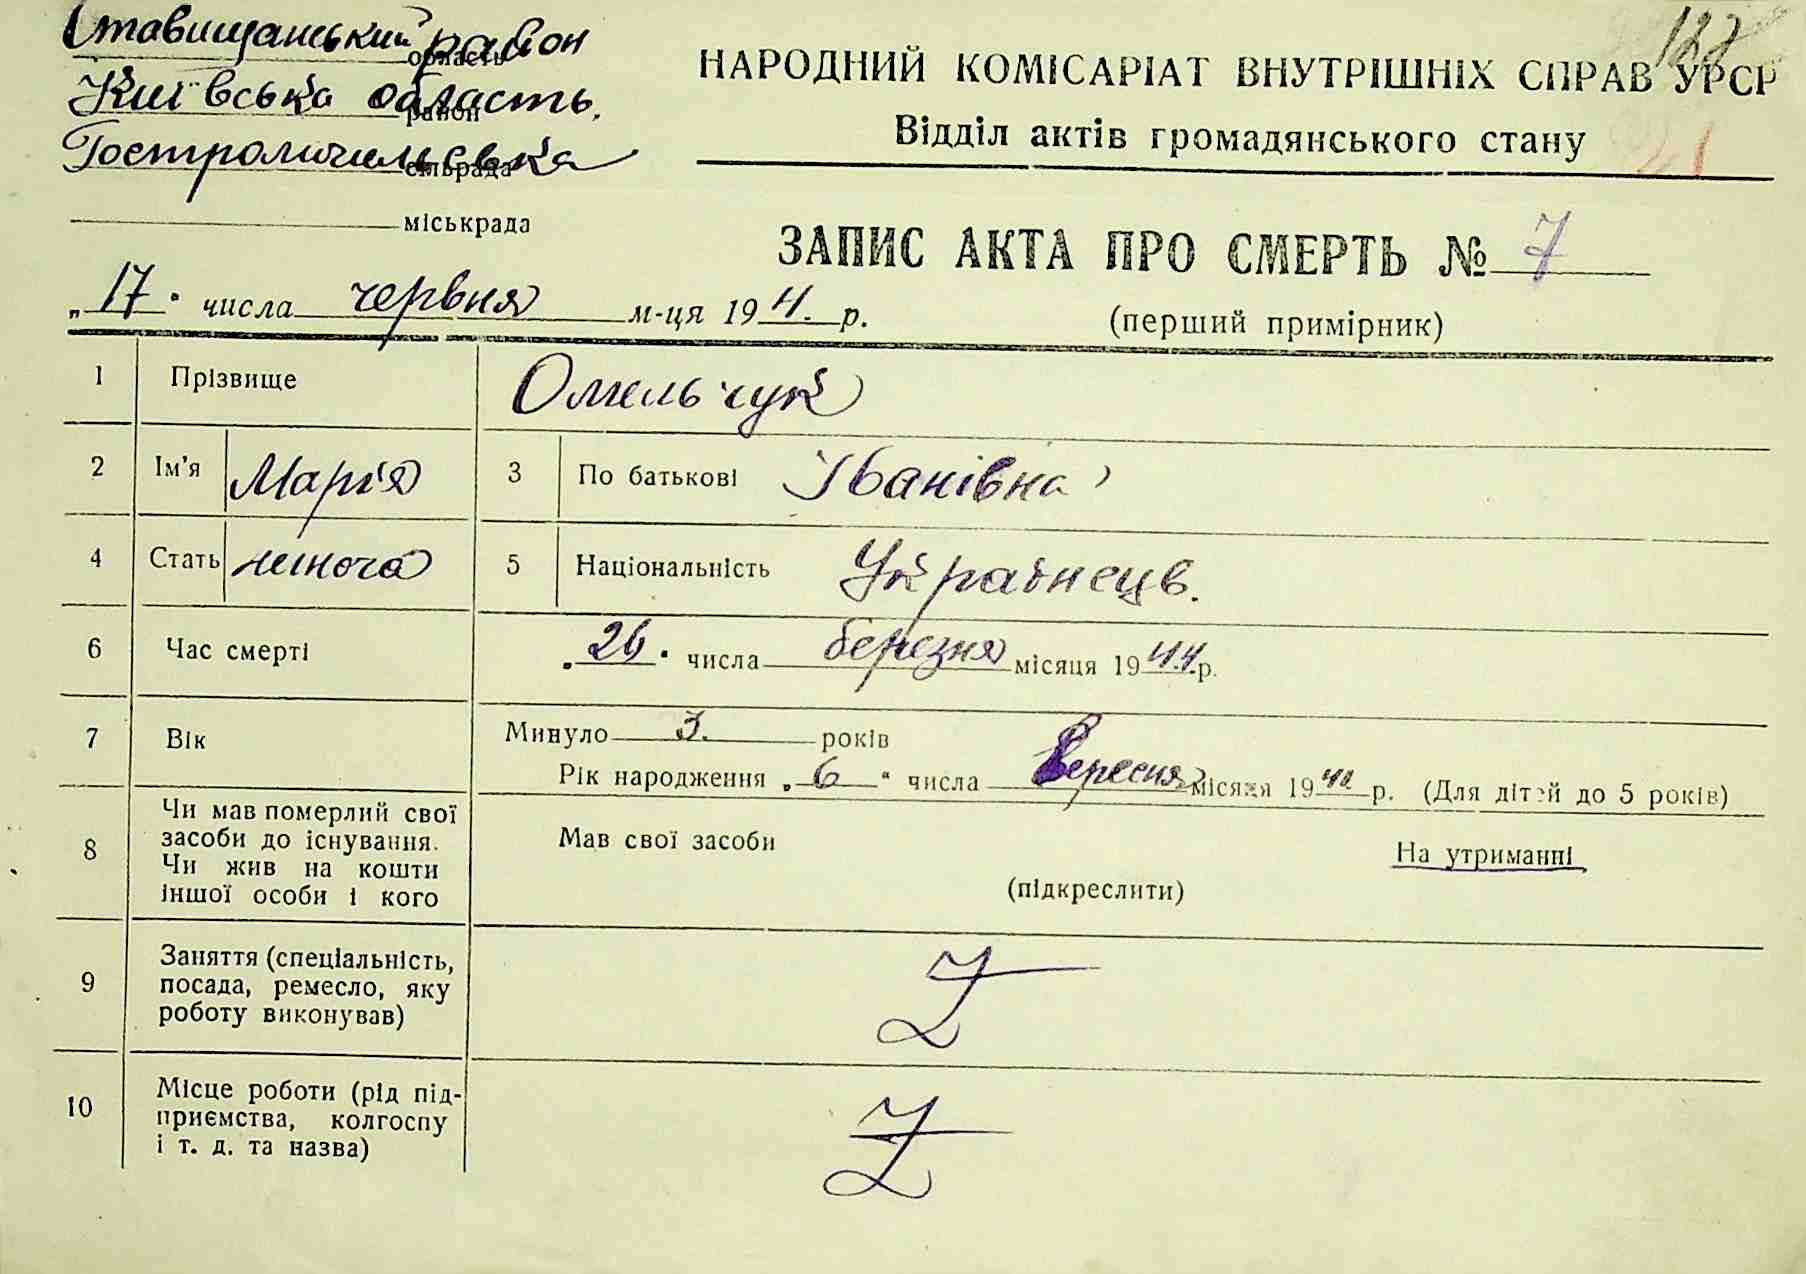 Ставищанський район область
Київська область. район
Гостромогильська сільрада
міськрада
127
НАРОДНИЙ КОМІСАРІАТ ВНУТРІШНІХ СПРАВ УРСР
Відділ актів громадянського стану
ЗАПИС АКТА ПРО СМЕРТЬ № 7
„17" числа червня м-ця 1944. р.
(перший примірник)
1 Прізвище Омельчук
2 Ім'я Марія 3 По батькові Іванівна
4 Стать жіноча 5 Національність Українець.
6 Час смерті „26" числа березня місяця 1944 р.
7 Вік Минуло 3. років
Рік народження „6" числа вересня місяця 1940 р. (Для дітей до 5 років)
8 Чи мав померлий свої
засоби до існування.
Чи жив на кошти
іншої особи і кого
Мав свої засоби На утриманні
(підкреслити)
9 Заняття (спеціальність,
посада, ремесло, яку
роботу виконував)
Z
10 Місце роботи (рід під-
приємства, колгоспу
і т. д. та назва)
Z